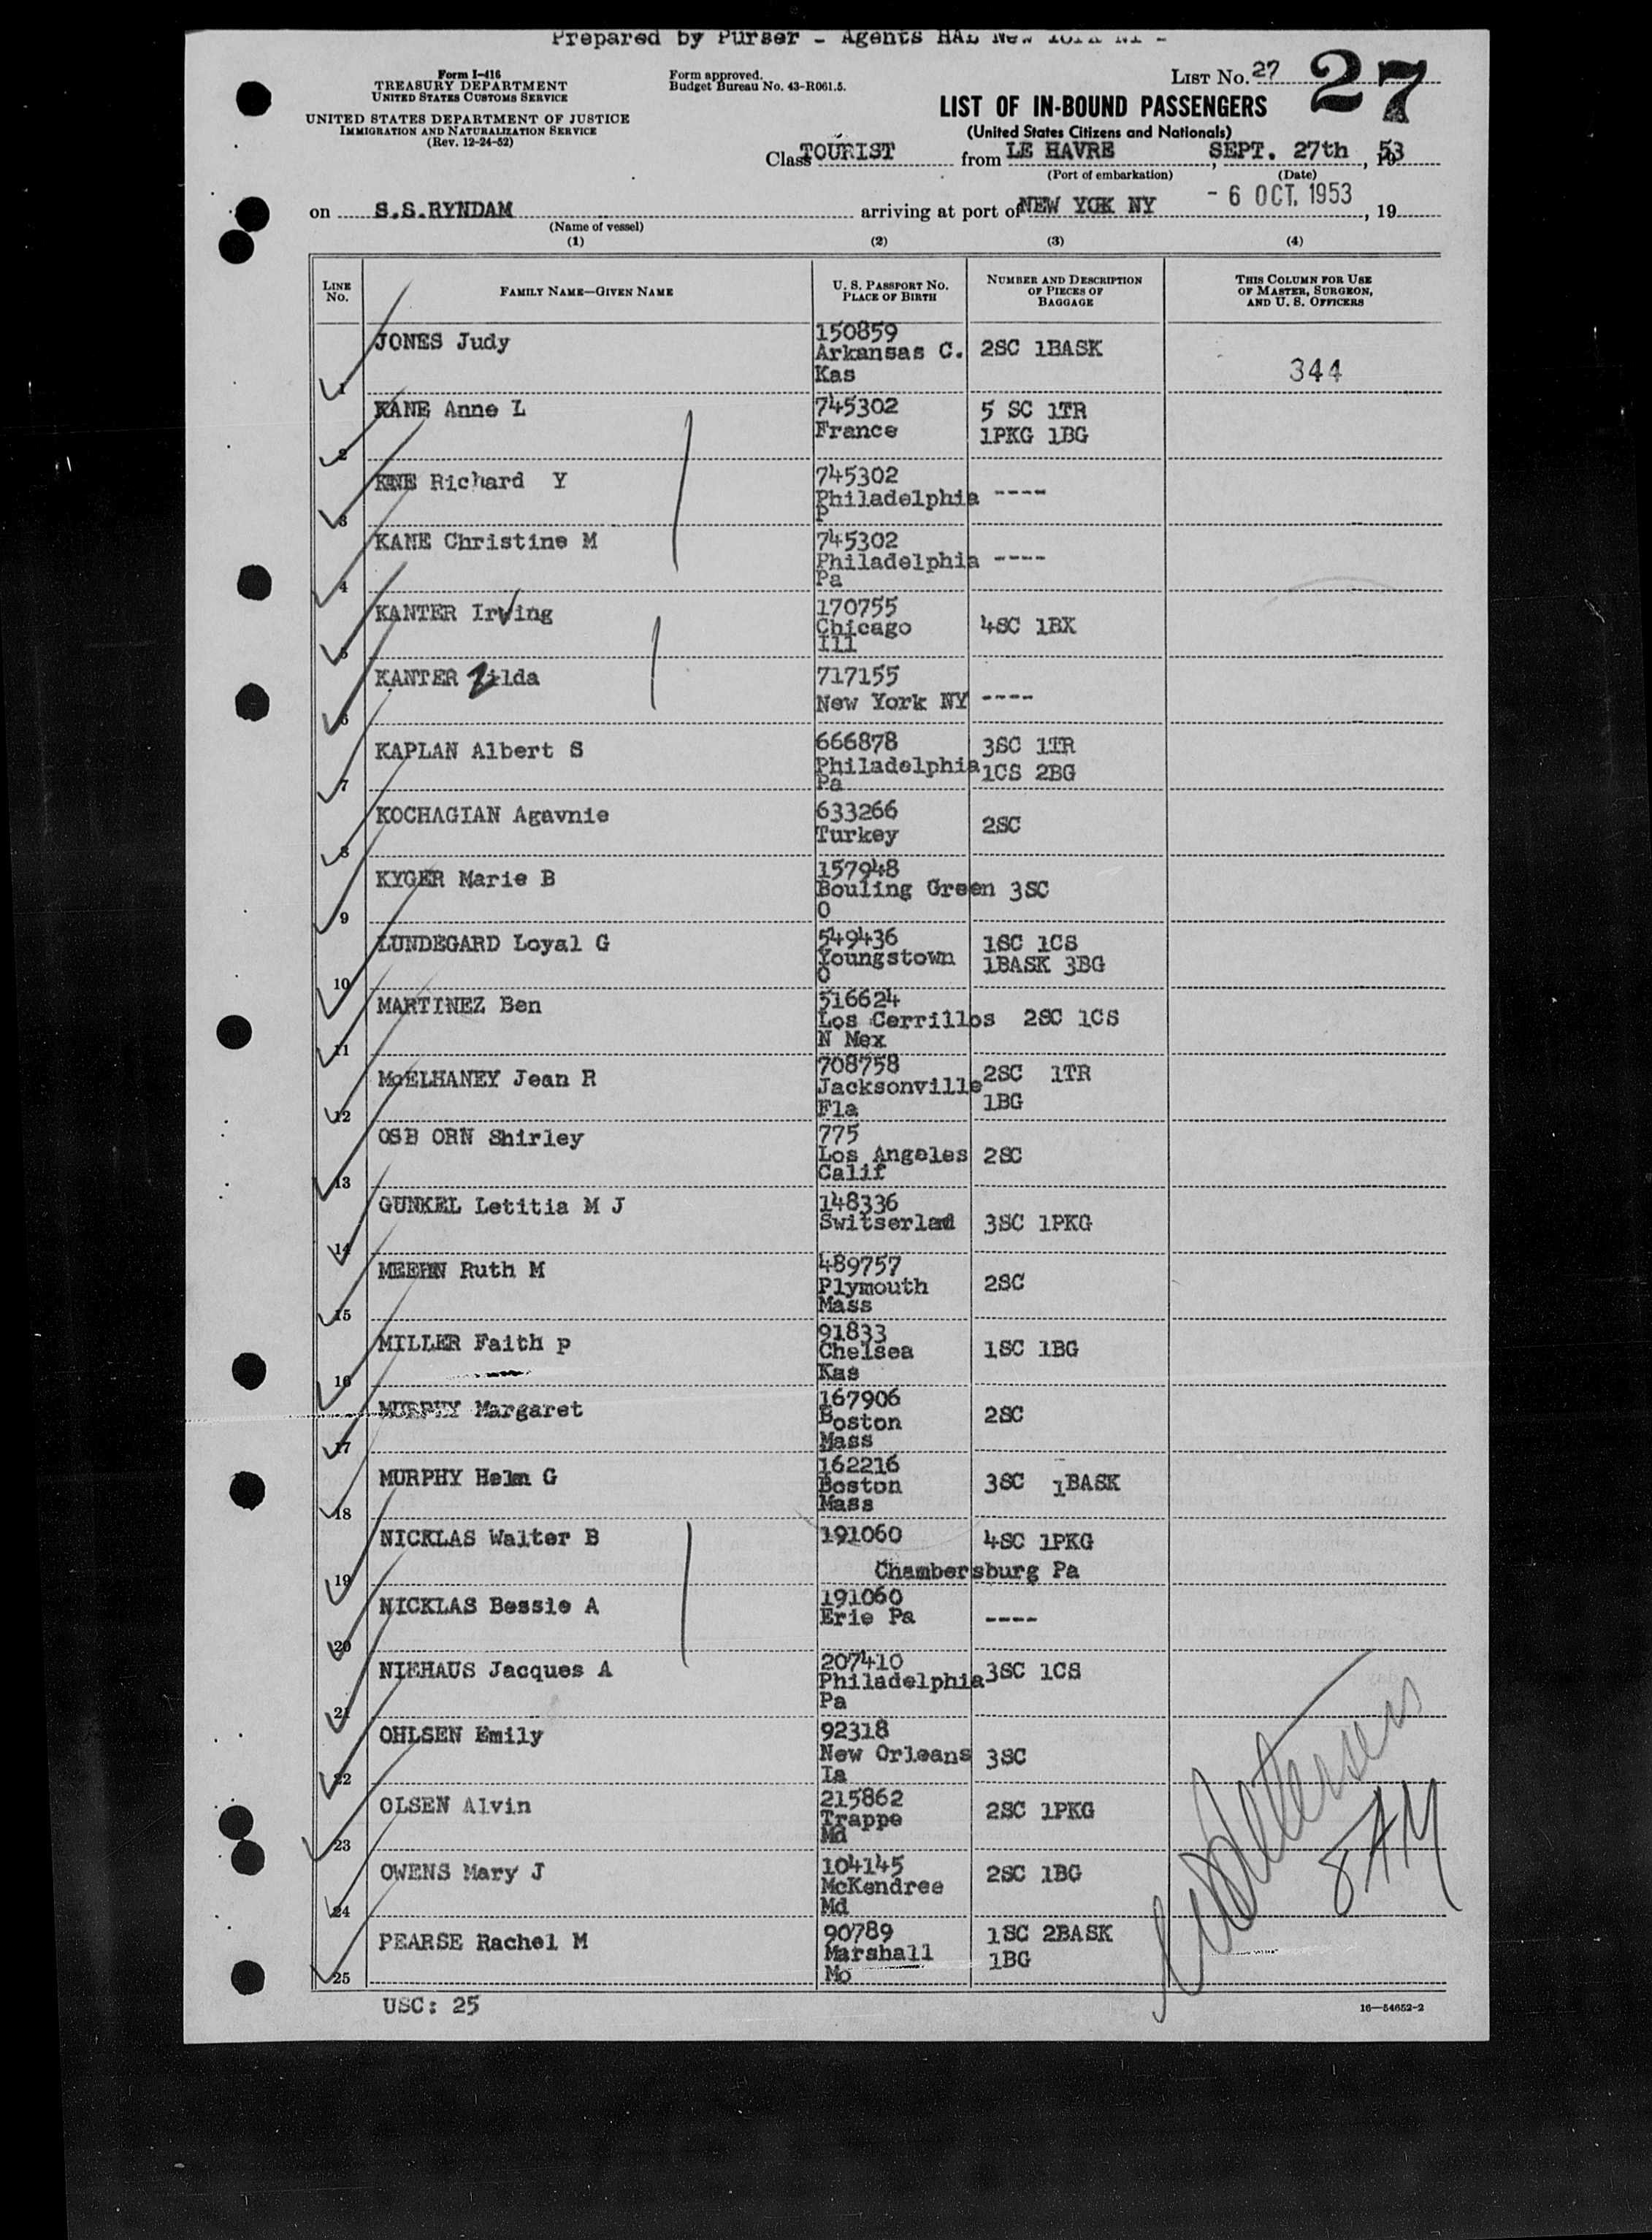 Prepared by Purser - Agents HAL New York NY -
Form I-416
TREASURY DEPARTMENT
UNITED STATES CUSTOMS SERVICE
UNITED STATES DEPARTMENT OF JUSTICE
IMMIGRATION AND NATURALIZATION SERVICE
(Rev. 12-24-52)
Form approved.
Budget Bureau No. 43-R061.5.
LIST No. 27 27
LIST OF IN-BOUND PASSENGERS
(United States Citizens and Nationals)
Class TOURIST from LE HAVRE, SEPT. 27th, 1953
(Port of embarkation) (Date)
on S.S.RYNDAM arriving at port of NEW YOK NY - 6 OCT. 1953, 19
(Name of vessel)
(1) (2) (3) (4)
LINE No. FAMILY NAME—GIVEN NAME U. S. PASSPORT No. PLACE OF BIRTH NUMBER AND DESCRIPTION OF PIECES OF BAGGAGE THIS COLUMN FOR USE OF MASTER, SURGEON, AND U. S. OFFICERS
1 JONES Judy 150859 Arkansas C. Kas 2SC 1BASK 344
2 KANE Anne L 745302 France 5 SC 1TR 1PKG 1BG
3 KNE Richard Y 745302 Philadelphia P ----
4 KANE Christine M 745302 Philadelphia Pa ----
5 KANTER Irving 170755 Chicago Ill 4SC 1BX
6 KANTER Zilda 717155 New York NY ----
7 KAPLAN Albert S 666878 Philadelphia Pa 3SC 1TR 1CS 2BG
8 KOCHAGIAN Agavnie 633266 Turkey 2SC
9 KYGER Marie B 157948 Bouling Green O 3SC
10 LUNDEGARD Loyal G 549436 Youngstown O 1SC 1CS 1BASK 3BG
11 MARTINEZ Ben 516624 Los Cerrillos N Mex 2SC 1CS
12 McELHANEY Jean R 708758 Jacksonville Fla 2SC 1TR 1BG
13 OSB ORN Shirley 775 Los Angeles Calif 2SC
14 GUNKEL Letitia M J 148336 Switserland 3SC 1PKG
15 MEEHN Ruth M 489757 Plymouth Mass 2SC
16 MILLER Faith p 91833 Chelsea Kas 1SC 1BG
17 MURPHY Margaret 167906 Boston Mass 2SC
18 MURPHY Helen G 162216 Boston Mass 3SC 1BASK
19 NICKLAS Walter B 191060 Chambersburg Pa 4SC 1PKG
20 NICKLAS Bessie A 191060 Erie Pa ----
21 NIEHAUS Jacques A 207410 Philadelphia Pa 3SC 1CS
22 OHLSEN Emily 92318 New Orleans La 3SC
23 OLSEN Alvin 215862 Trappe Md 2SC 1PKG
24 OWENS Mary J 104145 McKendree Md 2SC 1BG
25 PEARSE Rachel M 90789 Marshall Mo 1SC 2BASK 1BG
USC: 25
16—54652-2